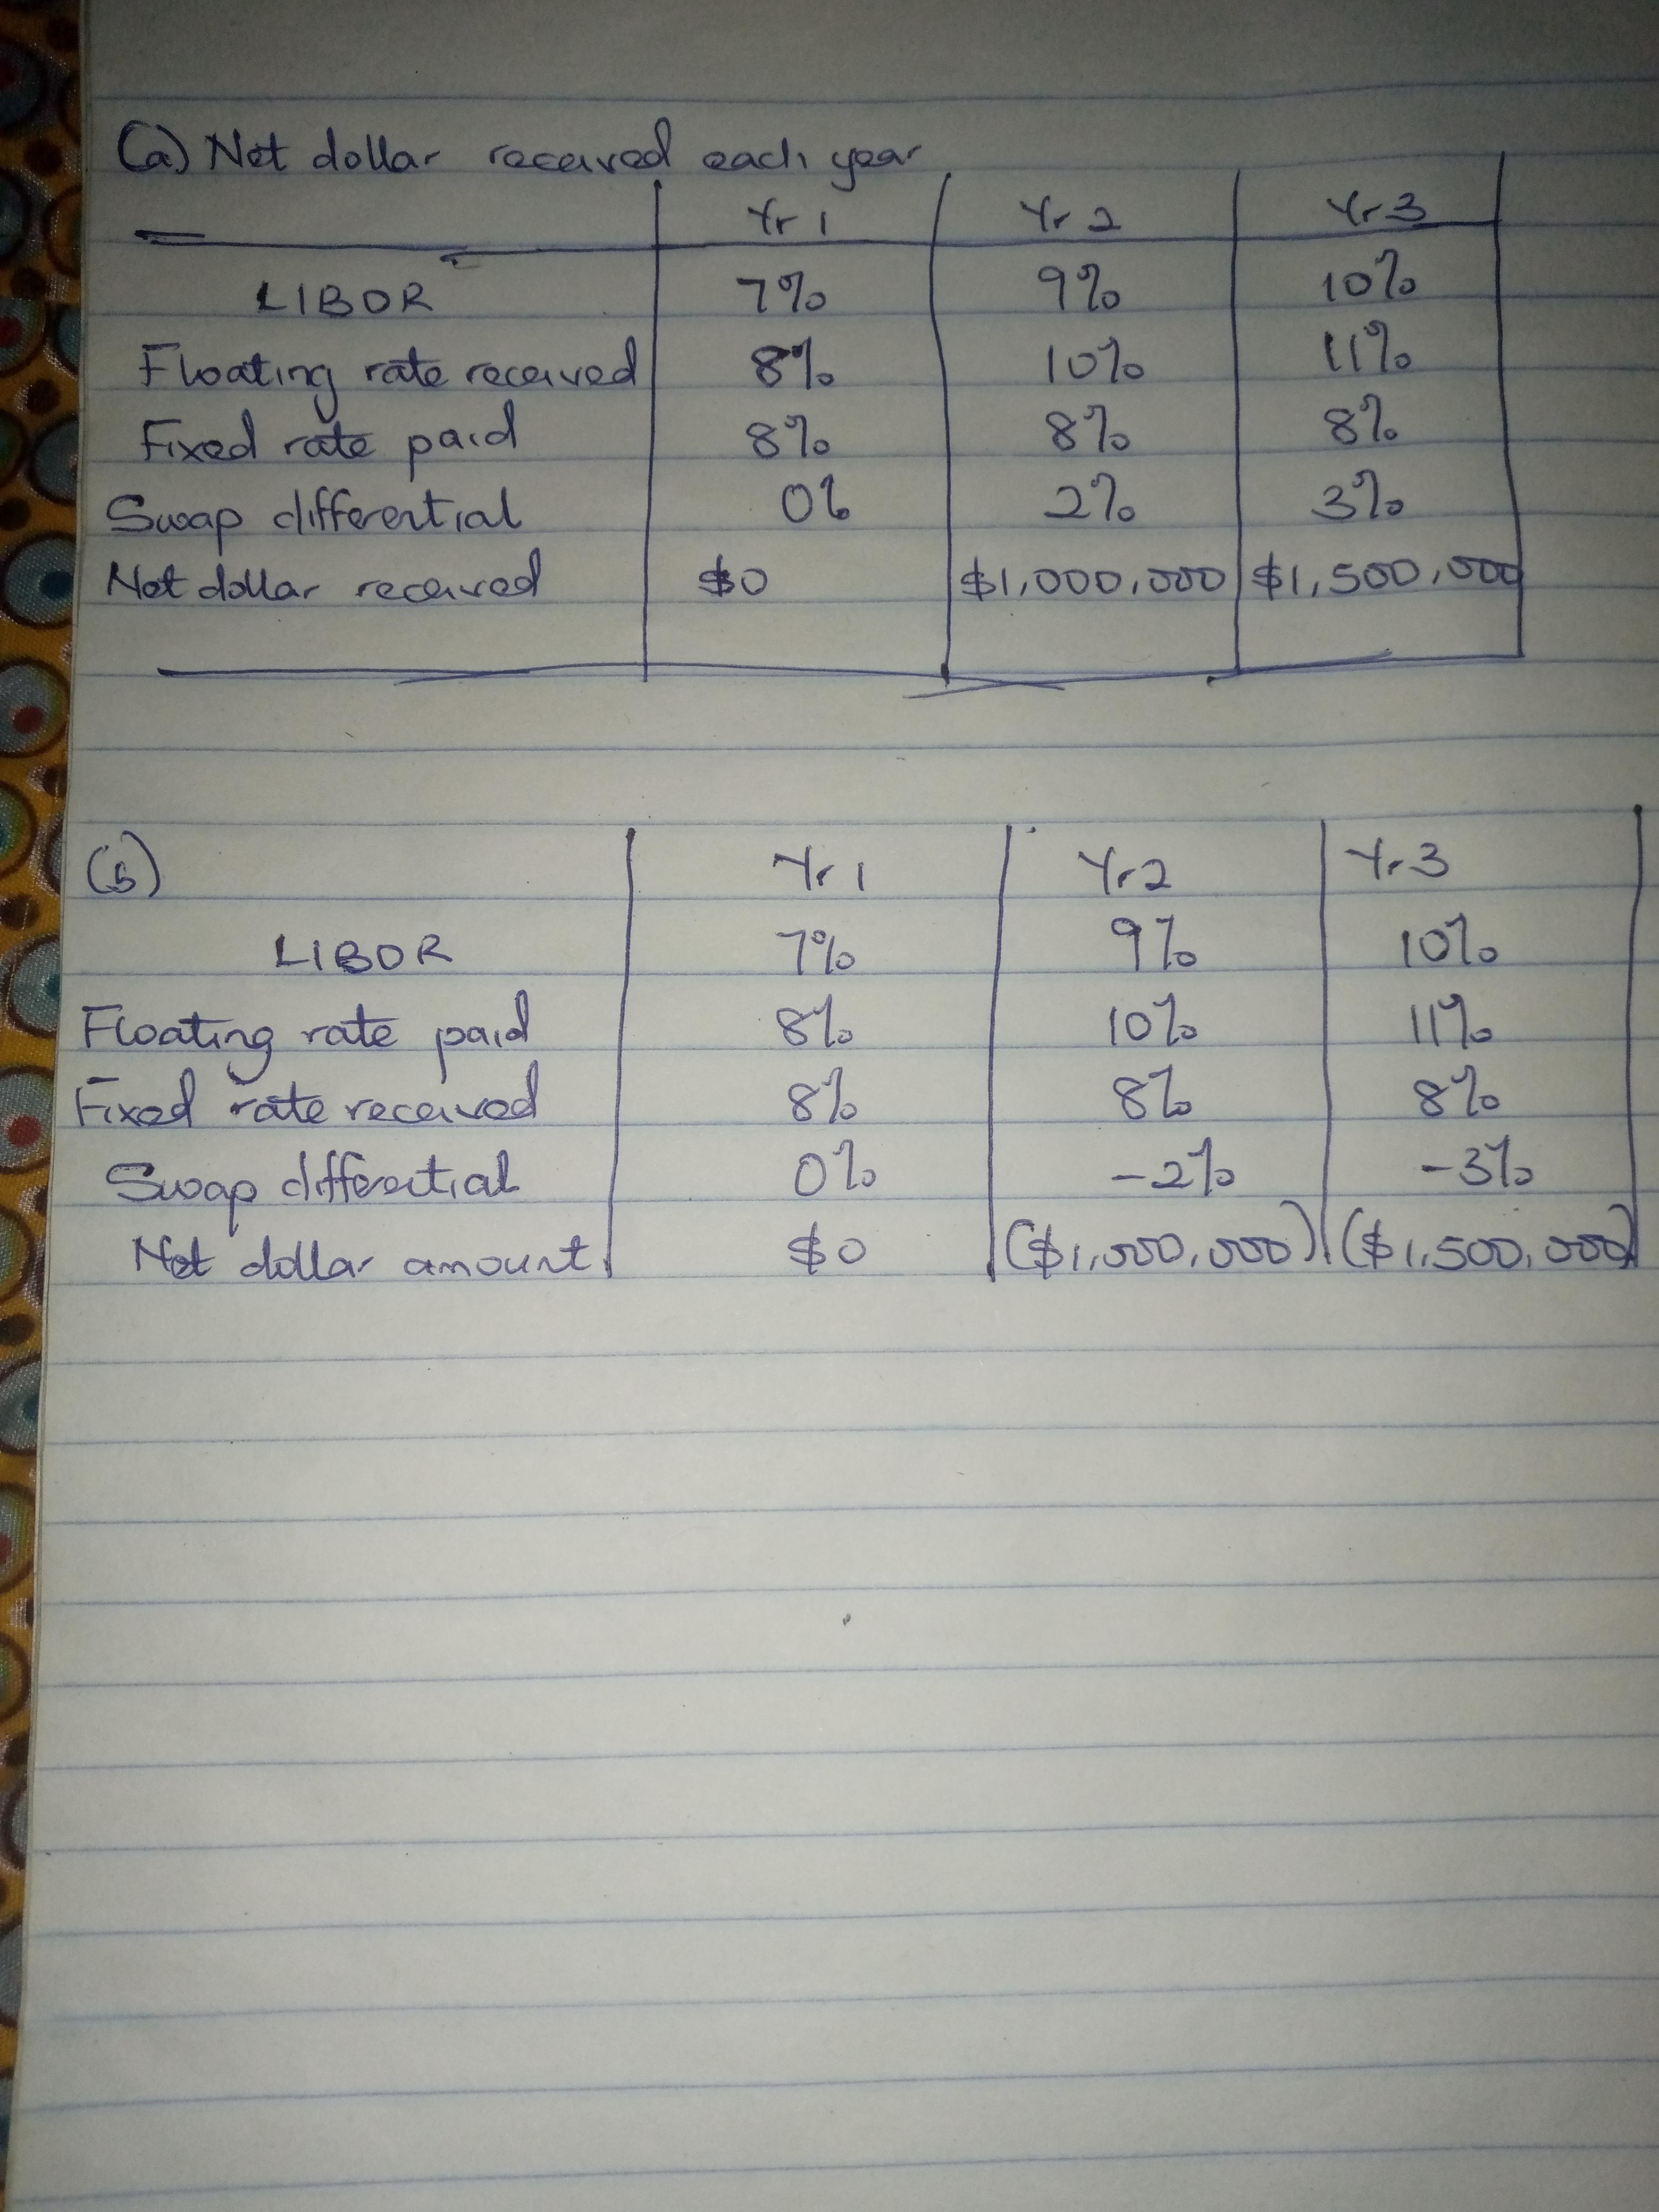 (a) Net dollar received each year
Yr 1 Yr 2 Yr 3
LIBOR 7% 9% 10%
Floating rate received 8% 10% 11%
Fixed rate paid 8% 8% 8%
Swap differential 0% 2% 3%
Net dollar received $0 $1,000,000 $1,500,000
(b) Yr 1 Yr 2 Yr 3
LIBOR 7% 9% 10%
Floating rate paid 8% 10% 11%
Fixed rate received 8% 8% 8%
Swap differential 0% -2% -3%
Net dollar amount. $0 ($1,000,000) ($1,500,000)